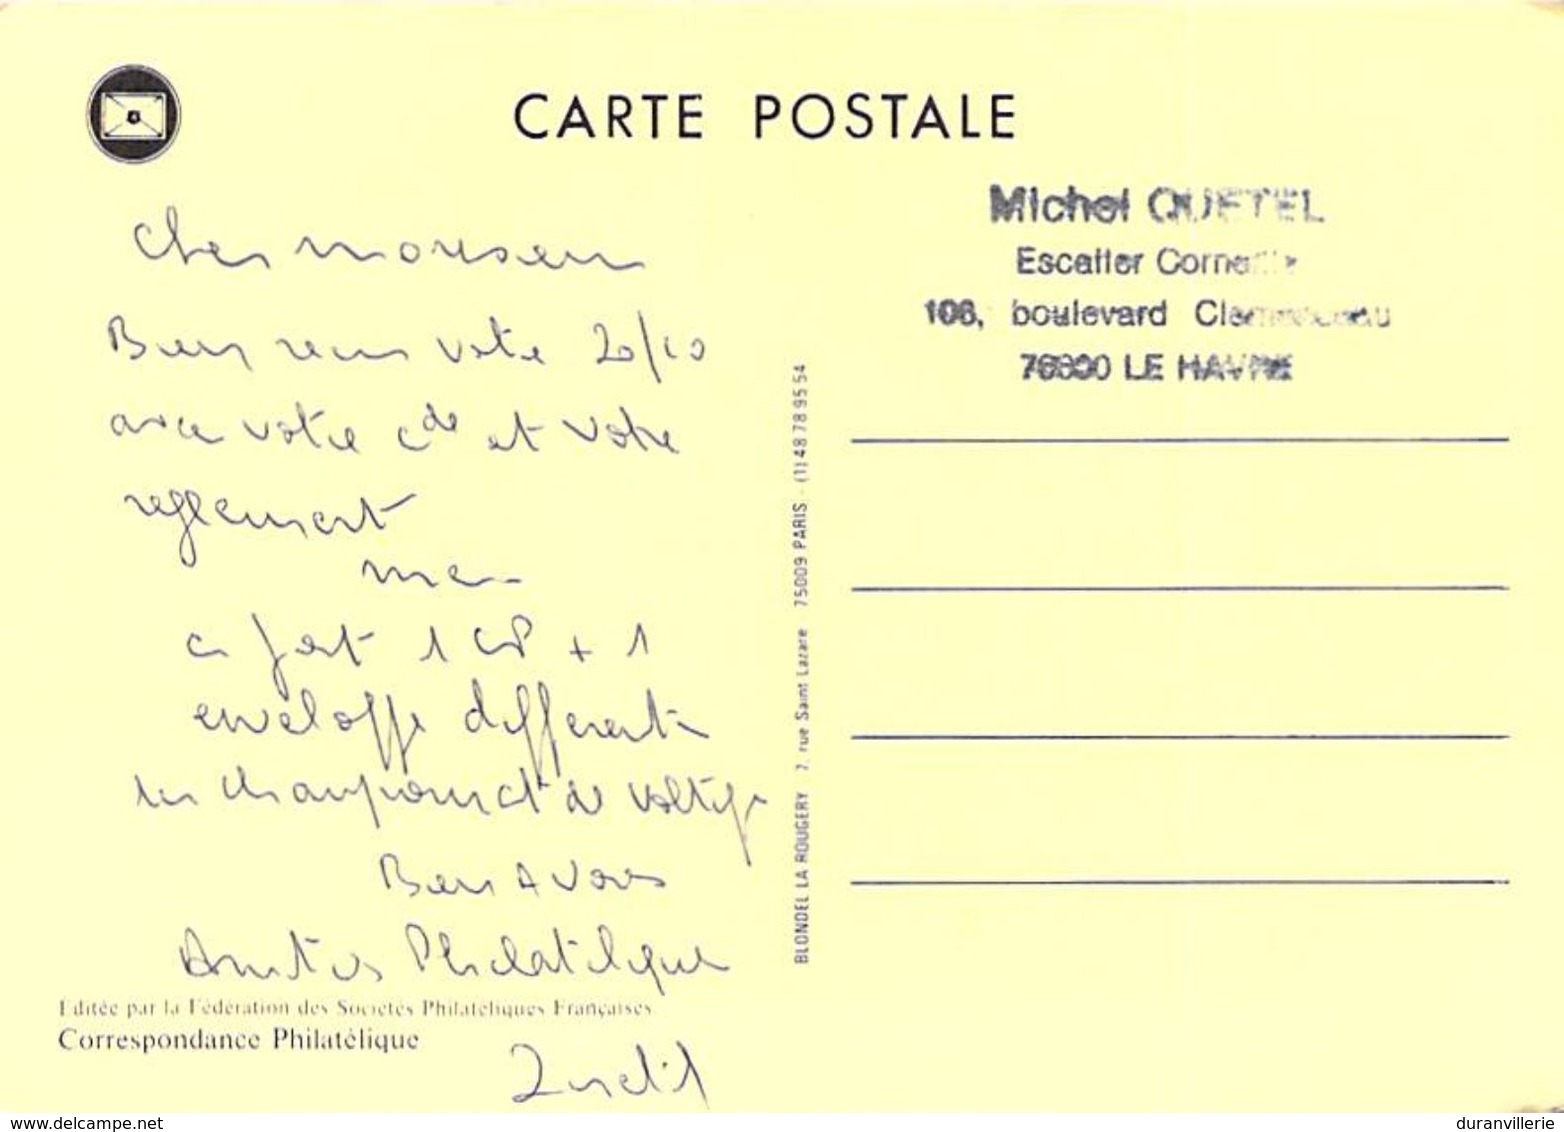 CARTE POSTALE
Michel QUETEL
Escalier Corneille
106, boulevard Clemenceau
76600 LE HAVRE
Cher monsieur
Bien recu votre 20/10
avec votre cde et votre
reglement
merci
ci joint 1 CP +1
enveloppe differente
les championnat de voltige
Bien A vous
Amities Philatelique
Editée par la Fédération des Sociétés Philatéliques Françaises
Correspondance Philatélique
BLONDEL LA ROUGERY 7, rue Saint Lazare - 75009 PARIS - (1) 48 78 95 54
www.delcampe.net
duranvillerie